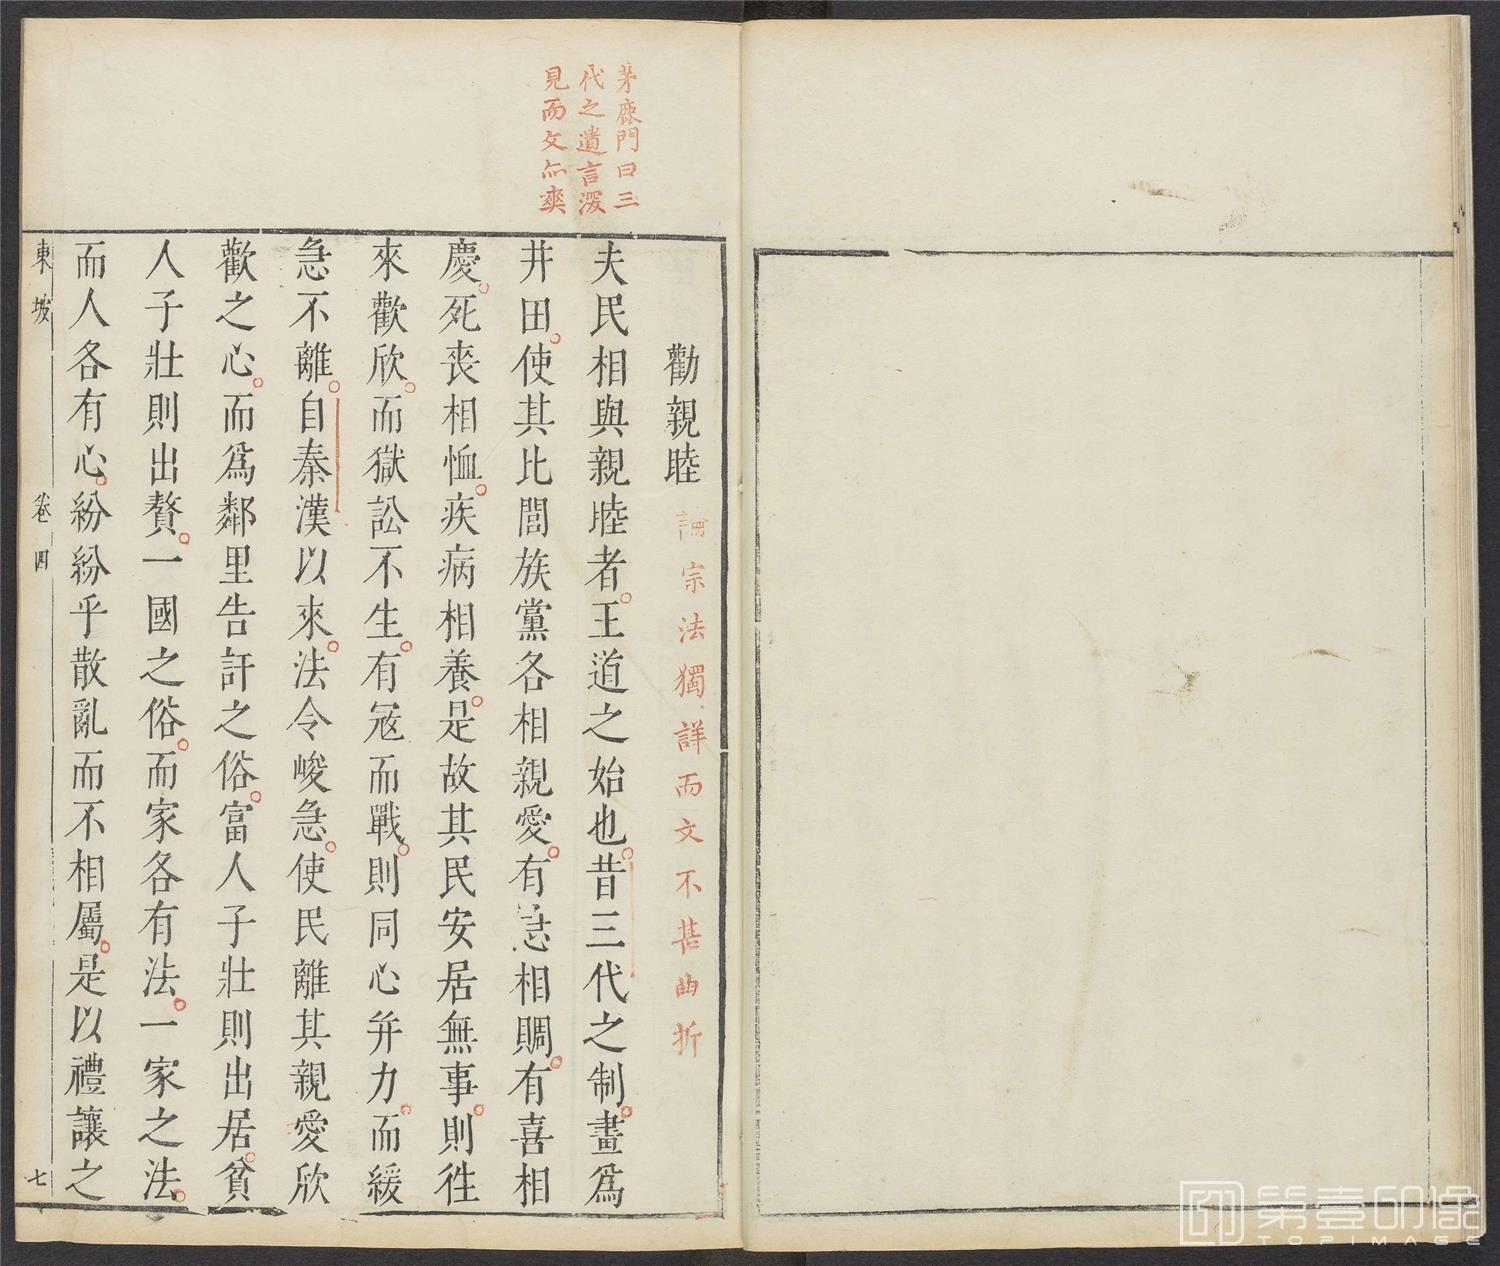 茅鹿門曰三
代之遺言潑
見而文亦爽
勸親睦 論宗法獨詳而文不甚曲折
夫民相與親睦者王道之始也昔三代之制畫爲
井田使其比閭族黨各相親愛有急相賙有喜相
慶死喪相恤疾病相養是故其民安居無事則徃
來歡欣而獄訟不生有冦而戰則同心并力而緩
急不離自秦漢以來法令峻急使民離其親愛欣
歡之心而爲鄰里告訐之俗富人子壯則出居貧
人子壯則出贅一國之俗而家各有法一家之法
而人各有心紛紛乎散亂而不相屬是以禮讓之
東坡 卷四 七
第壹印像
TOPIMAGE